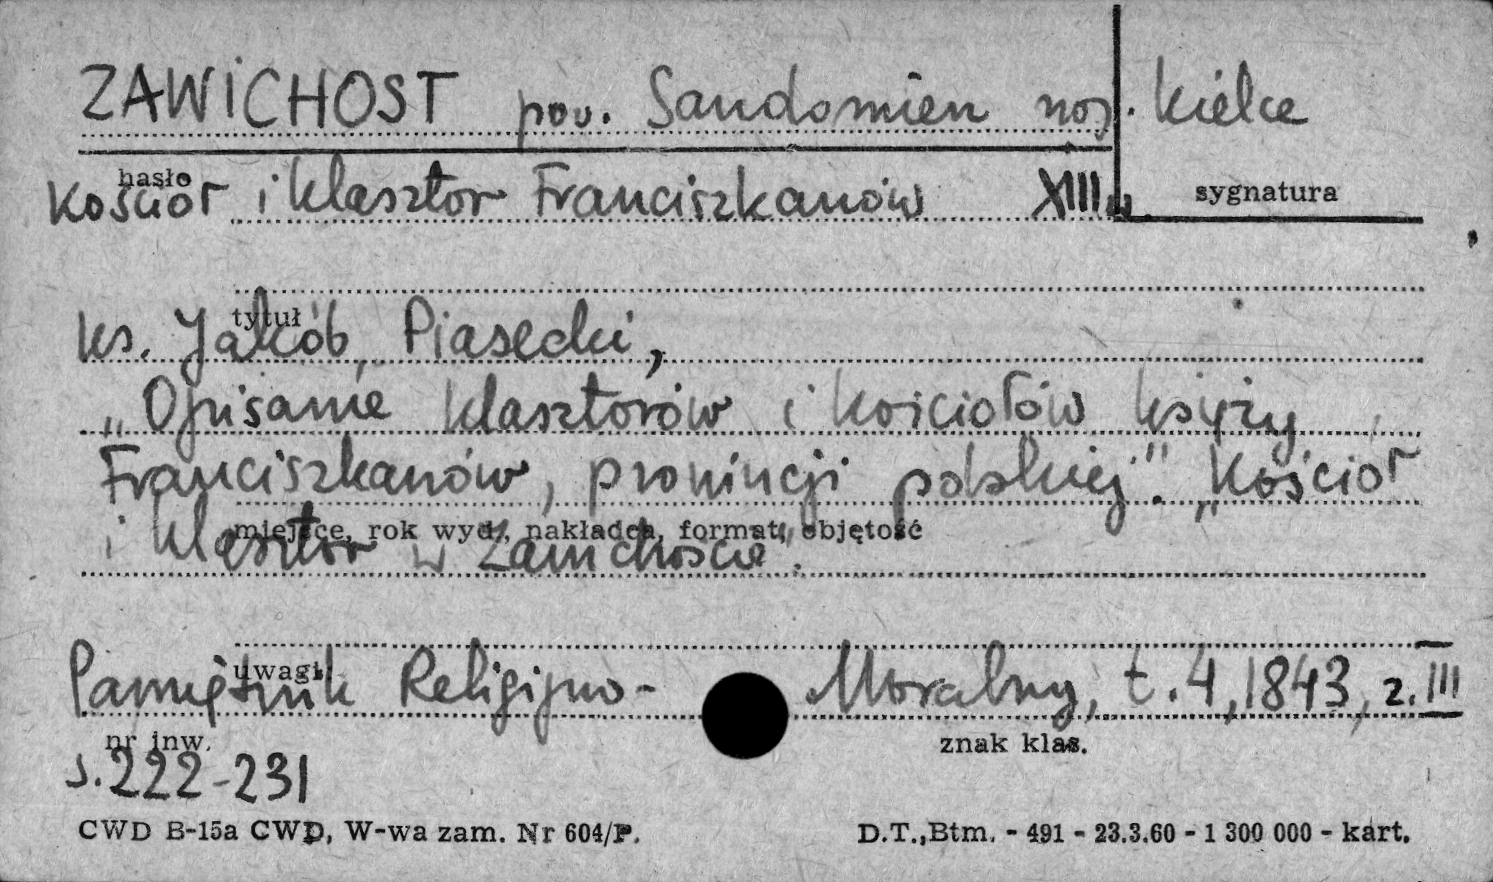 ZAWICHOST pow. Sandomierz woj. Kielce
hasło
Kościół i klasztor Franciszkanów XIII w.
sygnatura
tytuł
ks. Jakób Piasecki,
„Opisanie klasztorów i kościołów księży
Franciszkanów, prowincji polskiej". „Kościół
miejsce, rok wyd., nakładca, format, objętość
i klasztor w Zawichoście".
uwagi:
Pamiętnik Religijno- Moralny, t. 4, 1843, z. III
nr inw. znak klas.
s. 222-231
CWD B-15a CWD, W-wa zam. Nr 604/P. D.T.,Btm. - 491 - 23.3.60 - 1 300 000 - kart.